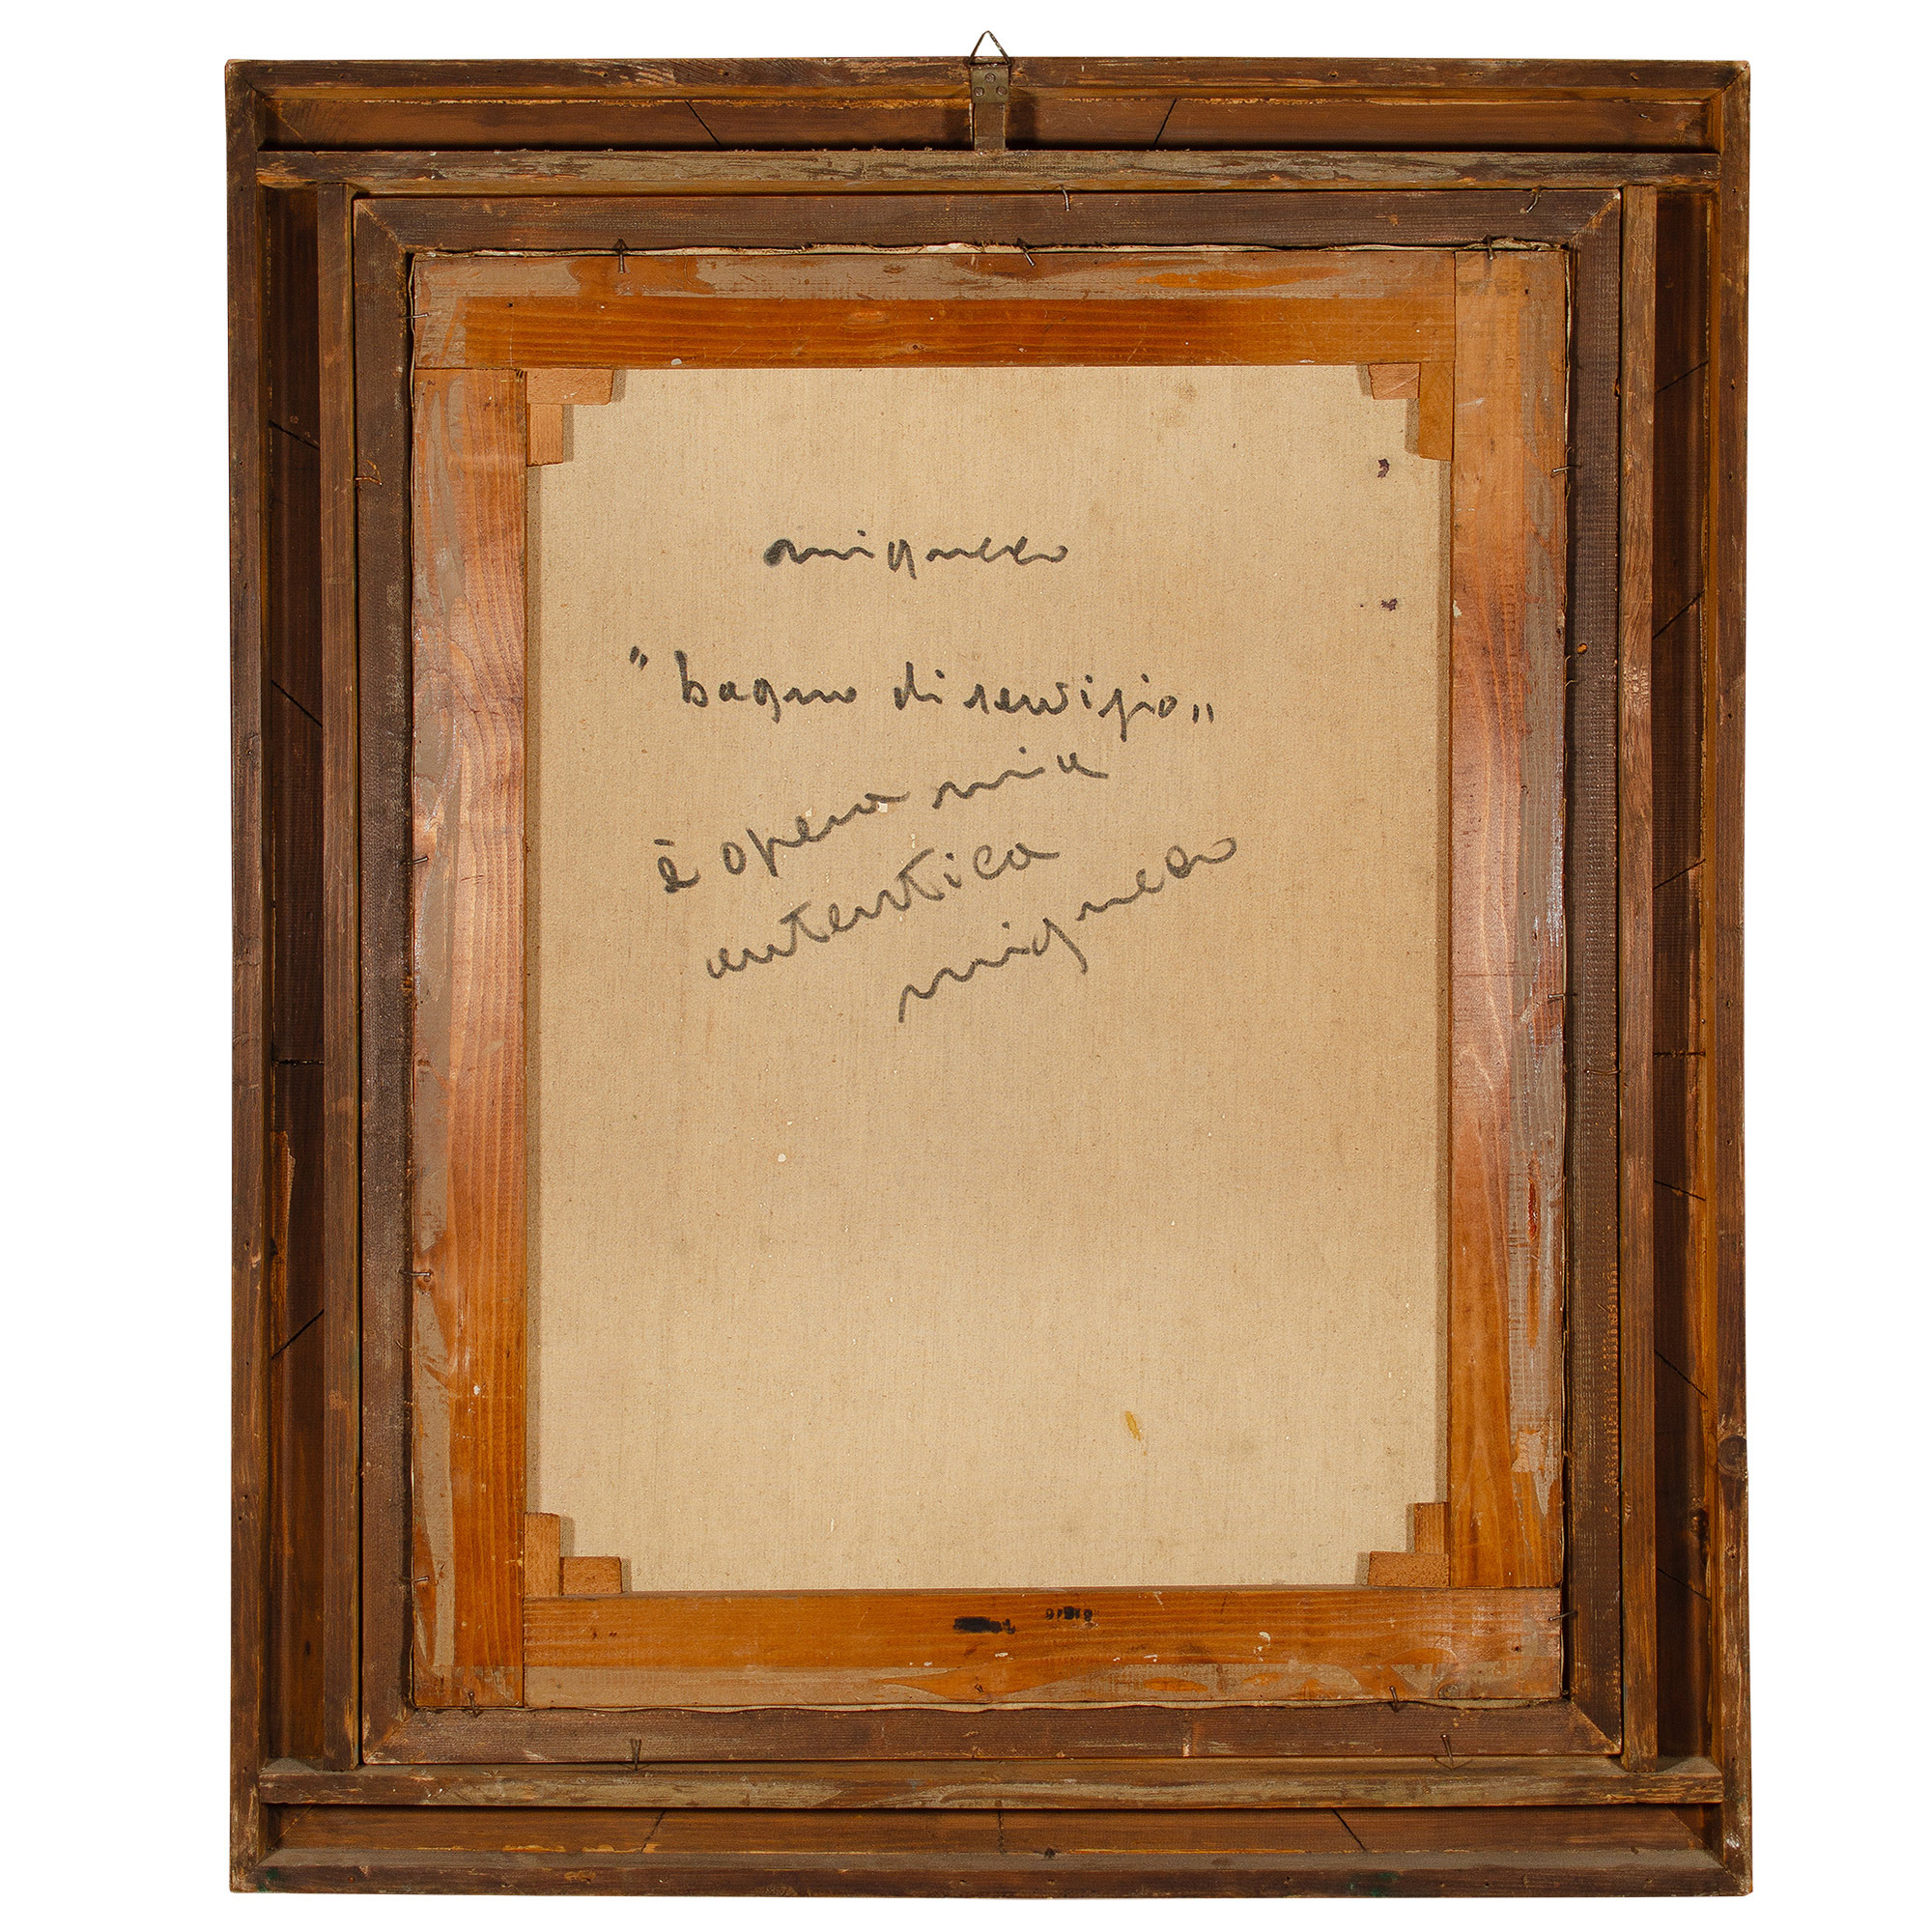 migneco
"bagno di servizio"
è opera mia
autentica
migneco